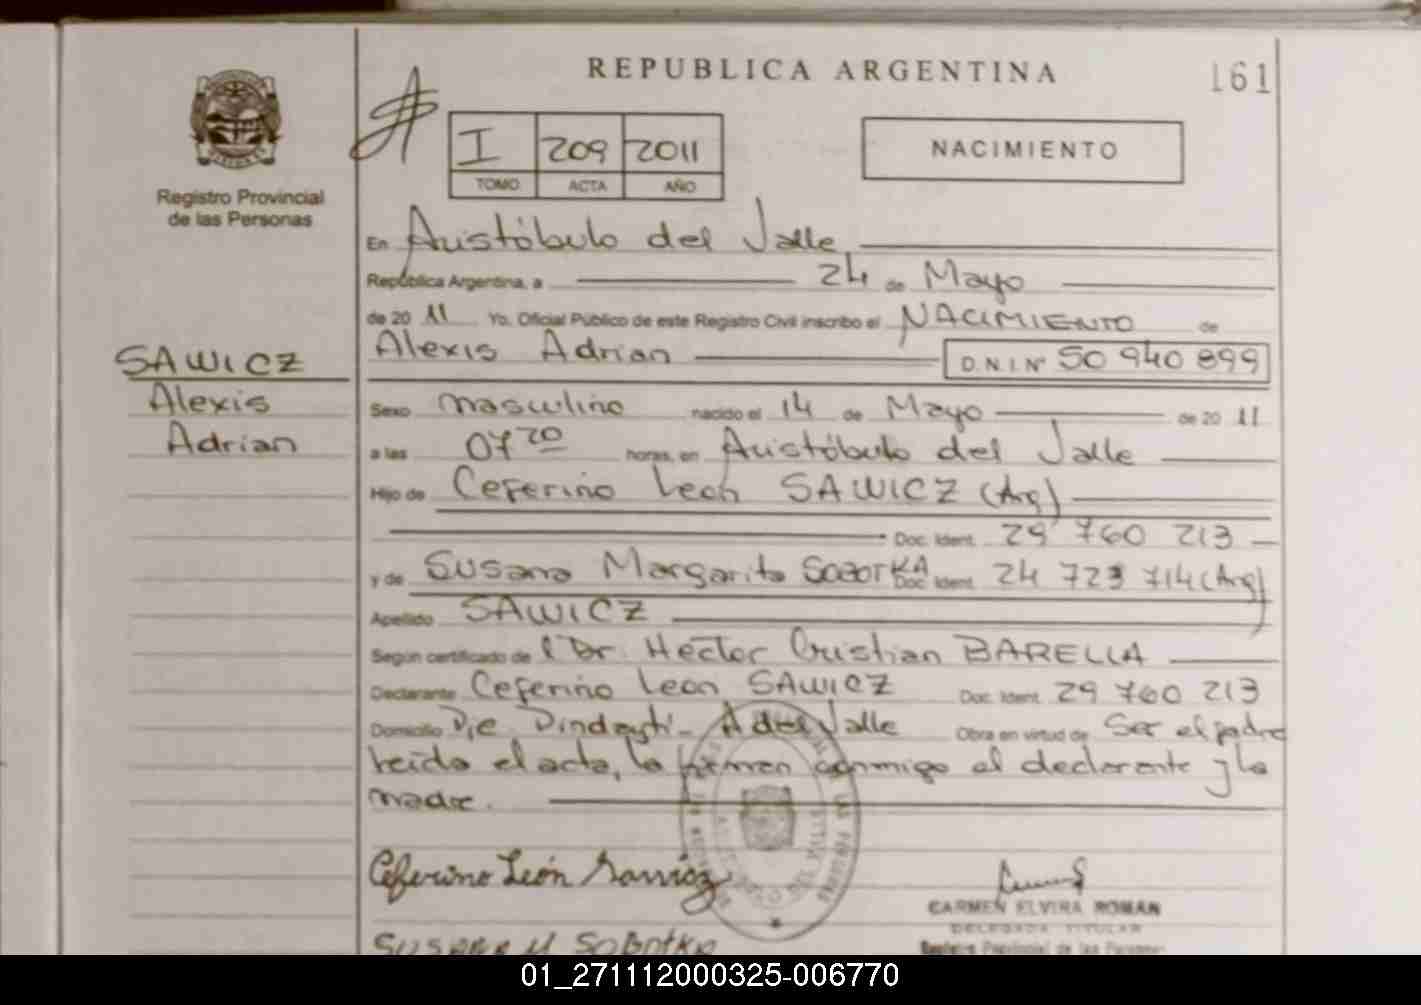 REPUBLICA ARGENTINA
161
Registro Provincial
de las Personas
I 209 2011
TOMO ACTA AÑO
NACIMIENTO
En Aristóbulo del Valle
República Argentina, a 24 de Mayo
de 20 11 Yo, Oficial Público de este Registro Civil inscribo el NACIMIENTO de
Alexis Adrian D.N.I. Nº 50 940 899
SAWICZ
Alexis
Adrian
Sexo masculino nacido el 14 de Mayo de 20 11
a las 07 20 horas, en Aristóbulo del Valle
Hijo de Ceferino Leon SAWICZ (Arg)
Doc. Ident. 29 760 213
y de Susana Margarita SOBOTKA Doc. Ident. 24 723 714 (Arg)
Apellido SAWICZ
Según certificado de l Dr. Hector Cristian BARELLA
Declarante Ceferino Leon SAWICZ Doc. Ident. 29 760 213
Domicilio A del Valle Obra en virtud de Ser el padre
Leida el acta, la firman conmigo el declarante y la
madre.
Ceferino León Sawicz
CARMEN ELVIRA ROMAN
DELEGADA TITULAR
Registro Provincial de las Personas
SUSANA M SOBOTKA
01_271112000325-006770